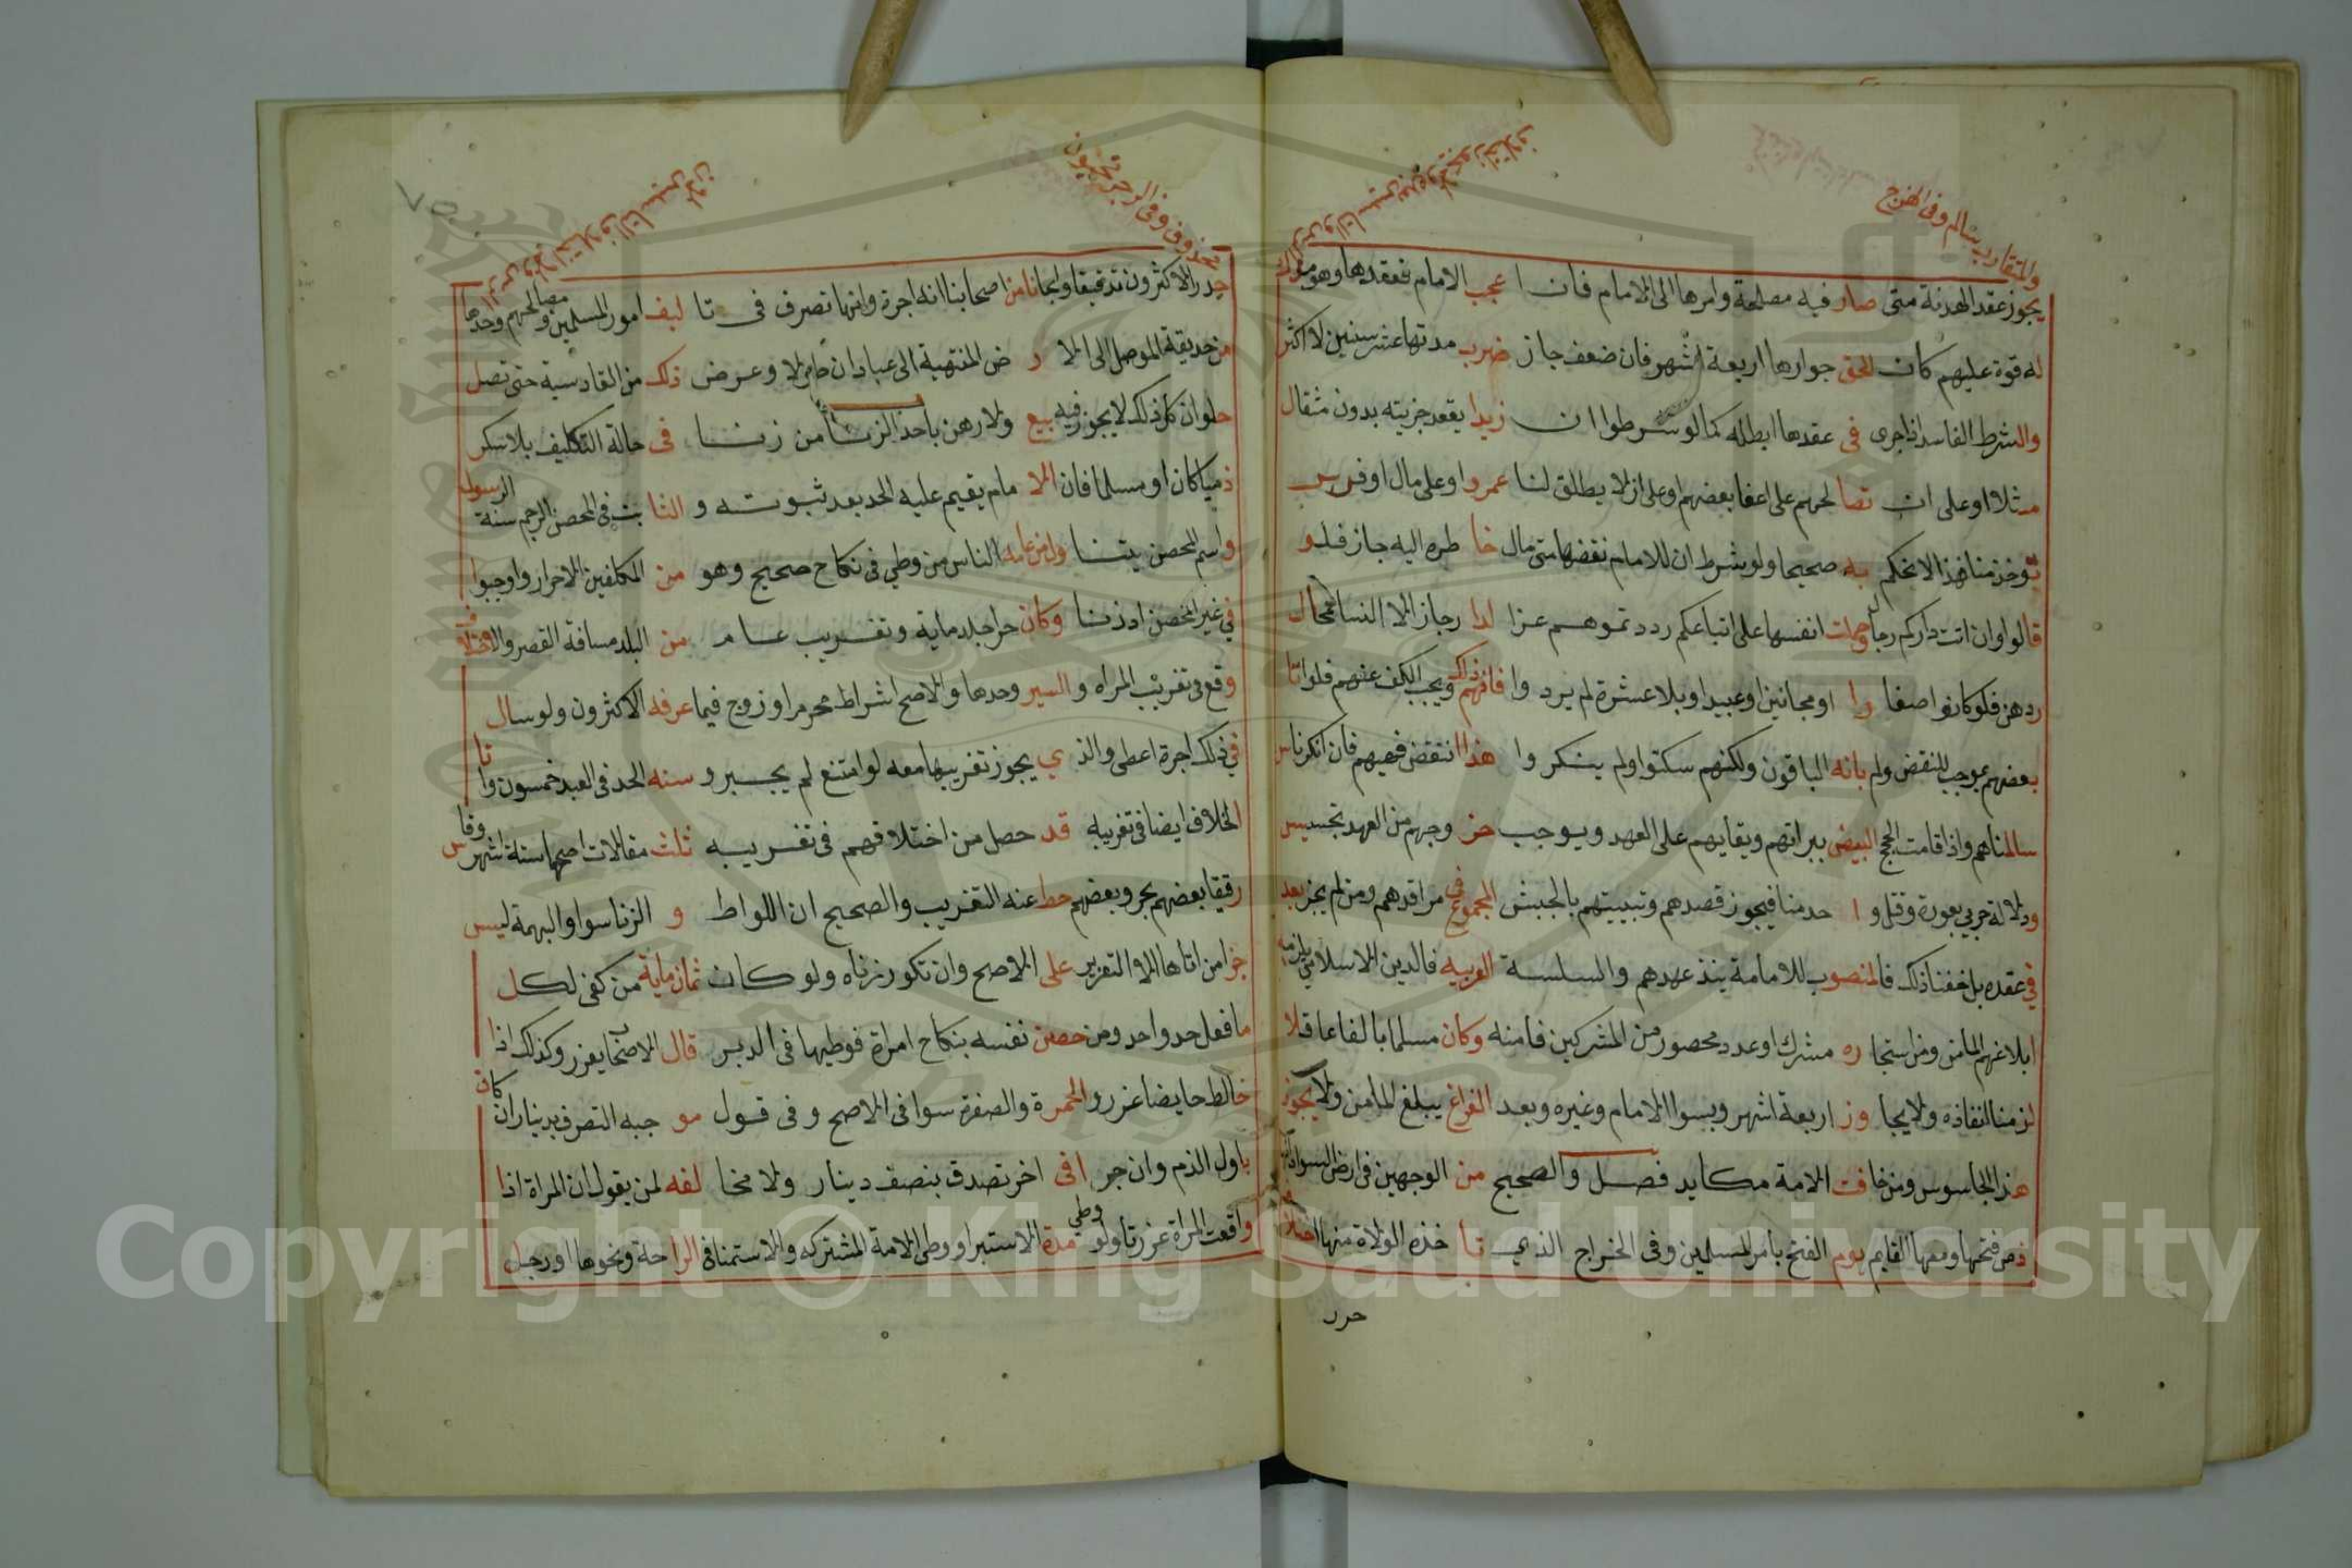 وللتقارب سالم وفى الهزج
يجوز عقد الهدنة متى صار فيه مصلحة وامرها الى الامام فان ا عجب الامام فعقدها وهو
له قوة عليهم كان للحق جوارها اربعة اشهر فان ضعف جاز ضرب مدتها عشر سنين لا اكثر
والشرط الفاسد اذا جرى فى عقدها ابطله كما لو شرطوا ان زيدا يقعد جزيته بدون مثقال
مثلا او على ان تصا لحهم على اعفا بعضهم او على ان لا يطلق لنا عمرو او على مال او فرس
يوخذ منا فخذ الاتحكم به صحيحا ولو شرط ان للامام نقضها متى مال خا طره اليه جاز فلو
قالوا وان اتت داركم رجا وحملت انفسها على اتباعكم ردد تموهم عزا لدا رجاز الا النسا فمحال
ردهن فلو كانوا صغا را او مجانين او عبيدا وبلا عشرة لم يرد وا فافهم ذلك ويجب الكف عنهم فلو اتا
بعضهم بموجب للنقض ولم يانه الباقون ولكنهم سكتوا ولم ينكر وا هذا انتقض فيهم فان انكر ناس
سالمناهم واذا قامت الحجج البيض ببراتهم وبقايهم على العهد ويوجب خر وجهم من العهد تجسيس
ودلالة حربي بعورة وقتلو ا حد منا فيجوز قصدهم وتبييتهم بالجيش المجموع فى مراقدهم ومن لم يجز بعد
في عقده بل خفنا ذلك فالمنصوب للامامة ينبذ عهدهم والسلسة العربيه فالدين الاسلامي يلزمه
ابلاغهم المامن ومن استجا ره مشرك او عدد محصور من المشركين فامنه وكان مسلما بالغا عاقلا
لزمنا انفاذه ولا يجا وز اربعة اشهر ويسوا الامام وغيره وبعد الفراغ يبلغ المامن ولا يجوز
هذا لجاسوس ومن خافت الامة مكايد فصل والصحيح من الوجهين فى ارض السواد
ذمن فتحها ومعها القايم يوم الفتح بامر المسلمين وفى الخراج الذي تا خذه الولاة منها
حرر
محذوف وفى الرجز
حرر الاكثرون تدقيقا وايجا نا من اصحابنا انه اجرة وانها تصرف فى تا ليف امور المسلمين ومصالحهم وحدها
من حديقة الموصل الى الا ر ض المنتهية الى عبادان طولا وعرض ذلك من القادسية حتى تصل
حلوان كل ذلك لا يجوز فيه بيع ولا رهن باحد الزنا من زنا فى حالة التكليف بلا سكر
ذميا كان او مسلما فان الا مام يقيم عليه الحد بعد ثبوته و الثا بت فى المحصن الرجم سنة الرسول
واسم المحصن يتنا وامن عامه الناس من وطي فى نكاح صحيح وهو من المكلفين الاحرار واوجبوا
في غير المحصن اذ زنا وكان حرا جلد ماية وتغريب عام من البلد مسافة القصر والاختلاف
وقع فى تغريب المراه و السير وحدها والاصح اشراط محرم او زوج فيما عرفه الاكثرون ولو سال
في ذلك اجرة اعطى والذ ي يجوز تغريبها معه لو امتنع لم يجبر و سنه الحد فى العبد خمسون وا تا
الخلاف ايضا فى تغريبه قد حصل من اختلافهم فى تغريبه ثلث مقالات اصحها ستة اشهر وقاس
رقيقا بعضهم بحر وبعضهم حط عنه التغريب والصحيح ان اللواط و الزنا سوا والبهمة ليس
جزا من اتاها الا التعزير على الاصح وان تكرر زناه ولو كان ثمان ماية من كفى لكل
ما فعل حد واحد ومن حصن نفسه بنكاح امراة فوطيها فى الدبر قال الاصحاب يعزر وكذلك اذا
خالط حايضا عزر والحمر ة والصفرة سوا فى الاصح وفى قول مو جبه التصرف بدينار ان كان
باول الدم وان جر افى اخر تصدق بنصف دينار ولا مخا لفه لمن يقول ان المراة اذا
واقعت المراة عزرتا ولو وطي مدة الاستبرا ووطى الامة المشتركه والاستمنا فى الرا حة ونحوها او رجل